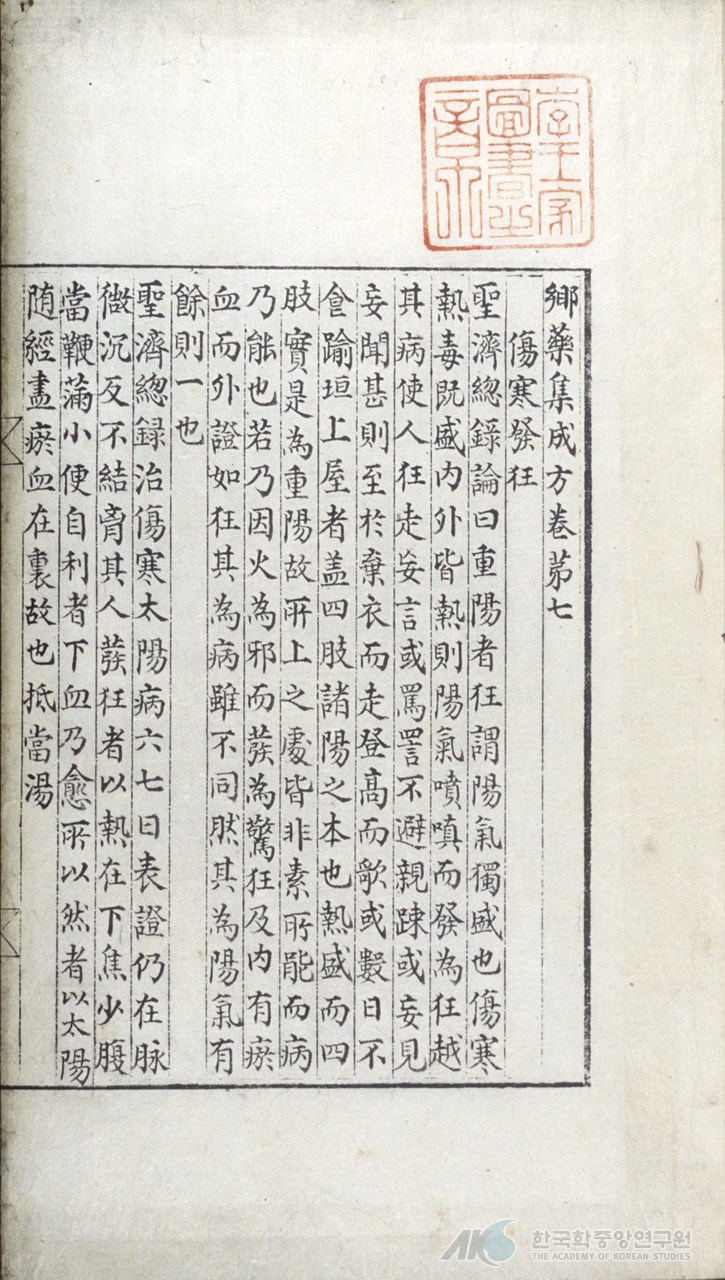 李王家圖書之章
鄕藥集成方卷苐七
傷寒發狂
聖濟總錄論曰重陽者狂謂陽氣獨盛也傷寒
熱毒旣盛内外皆熱則陽氣噴嗔而發為狂越
其病使人狂走妄言或罵詈不避親踈或妄見
妄聞甚則至於棄衣而走登髙而歌或數日不
食踰垣上屋者盖四肢諸陽之本也熱盛而四
肢實是為重陽故所上之處皆非素所能而病
乃能也若乃因火為邪而發為驚狂及内有瘀
血而外證如狂其為病雖不同然其為陽氣有
餘則一也
聖濟總録治傷寒太陽病六七日表證仍在脉
微沉反不結胷其人發狂者以熱在下焦少腹
當鞕滿小便自利者下血乃愈所以然者以太陽
随經盡瘀血在裏故也抵當湯
AKS 한국학중앙연구원
THE ACADEMY OF KOREAN STUDIES